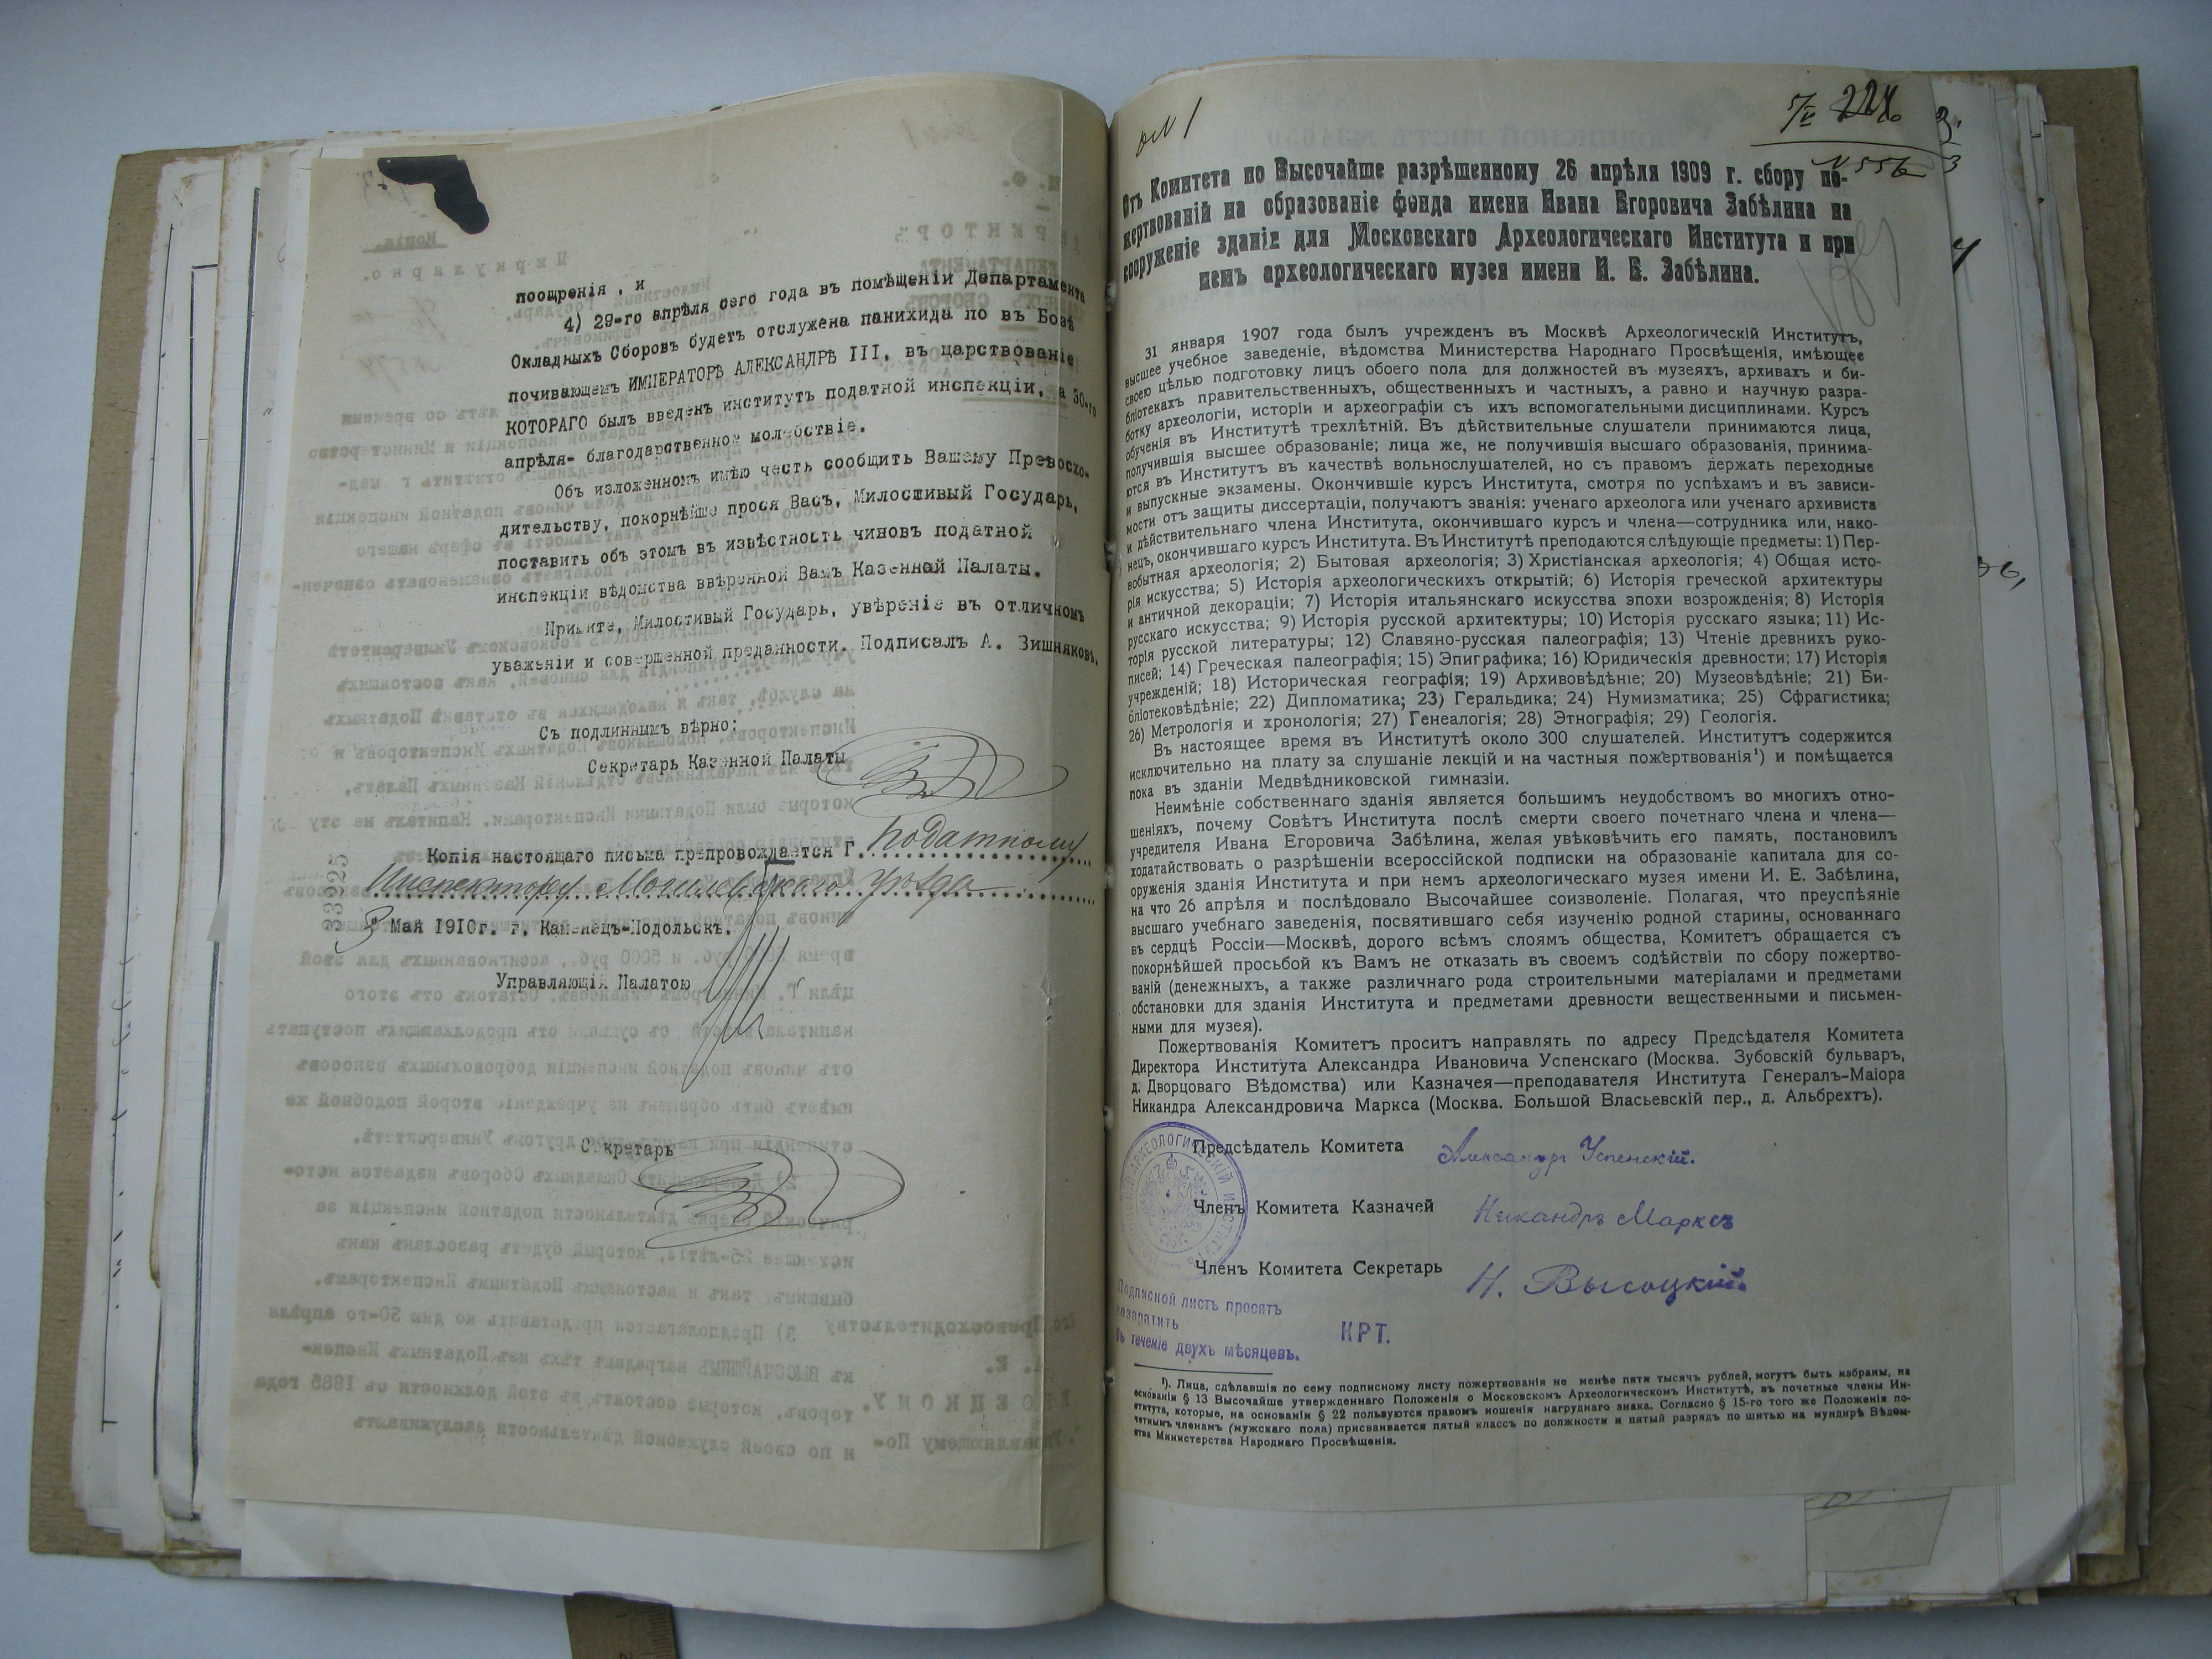 поощренія, и
4) 29-го апрѣля сего года въ помѣщеніи Департамента
Окладныхъ Сборовъ будетъ отслужена панихида по въ Бозѣ
почивающемъ ИМПЕРАТОРѢ АЛЕКСАНДРѢ III, въ царствованіе
КОТОРАГО былъ введенъ институтъ податной инспекціи, а 30-го
апрѣля- благодарственное молебствіе.
Объ изложенномъ имѣю честь сообщить Вашему Превосхо-
дительству, покорнѣйше прося Васъ, Милостивый Государь,
поставить объ этомъ въ извѣстность чиновъ податной
инспекціи вѣдомства ввѣренной Вамъ Казенной Палаты.
Примите, Милостивый Государь, увѣреніе въ отличномъ
уваженіи и совершенной преданности. Подписалъ А. Вишняковъ.
Съ подлиннымъ вѣрно:
Секретарь Казенной Палаты
Копія настоящаго письма препровождается Г. Податному
Инспектору Могилевскаго уѣзда
33925
3 Мая 1910г. г. Каменецъ-Подольскъ.
Управляющій Палатою
Секретарь
№ 556
Отъ Комитета по Высочайше разрѣшенному 26 апрѣля 1909 г. сбору по-
жертвованій на образованіе фонда имени Ивана Егоровича Забѣлина на
сооруженіе зданія для Московскаго Археологическаго Института и при
немъ археологическаго музея имени И. Е. Забѣлина.
31 января 1907 года былъ учрежденъ въ Москвѣ Археологическій Институтъ,
высшее учебное заведеніе, вѣдомства Министерства Народнаго Просвѣщенія, имѣющее
своею цѣлью подготовку лицъ обоего пола для должностей въ музеяхъ, архивахъ и би-
бліотекахъ правительственныхъ, общественныхъ и частныхъ, а равно и научную разра-
ботку археологіи, исторіи и археографіи съ ихъ вспомогательными дисциплинами. Курсъ
обученія въ Институтѣ трехлѣтній. Въ дѣйствительные слушатели принимаются лица,
получившія высшее образованіе; лица же, не получившія высшаго образованія, принима-
ются въ Институтъ въ качествѣ вольнослушателей, но съ правомъ держать переходные
и выпускные экзамены. Окончившіе курсъ Института, смотря по успѣхамъ и въ зависи-
мости отъ защиты диссертаціи, получаютъ званія: ученаго археолога или ученаго архивиста
и дѣйствительнаго члена Института, окончившаго курсъ и члена—сотрудника или, нако-
нецъ, окончившаго курсъ Института. Въ Институтѣ преподаются слѣдующіе предметы: 1) Пер-
вобытная археологія; 2) Бытовая археологія; 3) Христіанская археологія; 4) Общая исто-
рія искусства; 5) Исторія археологическихъ открытій; 6) Исторія греческой архитектуры
и античной декораціи; 7) Исторія итальянскаго искусства эпохи возрожденія; 8) Исторія
русскаго искусства; 9) Исторія русской архитектуры; 10) Исторія русскаго языка; 11) Ис-
торія русской литературы; 12) Славяно-русская палеографія; 13) Чтеніе древнихъ руко-
писей; 14) Греческая палеографія; 15) Эпиграфика; 16) Юридическія древности; 17) Исторія
учрежденій; 18) Историческая географія; 19) Архивовѣдѣніе; 20) Музеовѣдѣніе; 21) Би-
бліотековѣдѣніе; 22) Дипломатика; 23) Геральдика; 24) Нумизматика; 25) Сфрагистика;
26) Метрологія и хронологія; 27) Генеалогія; 28) Этнографія; 29) Геологія.
Въ настоящее время въ Институтѣ около 300 слушателей. Институтъ содержится
исключительно на плату за слушаніе лекцій и на частныя пожертвованія¹) и помѣщается
пока въ зданіи Медвѣдниковской гимназіи.
Неимѣніе собственнаго зданія является большимъ неудобствомъ во многихъ отно-
шеніяхъ, почему Совѣтъ Института послѣ смерти своего почетнаго члена и члена—
учредителя Ивана Егоровича Забѣлина, желая увѣковѣчить его память, постановилъ
ходатайствовать о разрѣшеніи всероссійской подписки на образованіе капитала для со-
оруженія зданія Института и при немъ археологическаго музея имени И. Е. Забѣлина,
на что 26 апрѣля и послѣдовало Высочайшее соизволеніе. Полагая, что преуспѣяніе
высшаго учебнаго заведенія, посвятившаго себя изученію родной старины, основаннаго
въ сердцѣ Россіи—Москвѣ, дорого всѣмъ слоямъ общества, Комитетъ обращается съ
покорнѣйшей просьбой къ Вамъ не отказать въ своемъ содѣйствіи по сбору пожертво-
ваній (денежныхъ, а также различнаго рода строительными матеріалами и предметами
обстановки для зданія Института и предметами древности вещественными и письмен-
ными для музея).
Пожертвованія Комитетъ проситъ направлять по адресу Предсѣдателя Комитета
Директора Института Александра Ивановича Успенскаго (Москва. Зубовскій бульваръ,
д. Дворцоваго Вѣдомства) или Казначея—преподавателя Института Генералъ-Маіора
Никандра Александровича Маркса (Москва. Большой Власьевскій пер., д. Альбрехтъ).
Предсѣдатель Комитета Александръ Успенскій.
Членъ Комитета Казначей Никандръ Марксъ
Членъ Комитета Секретарь Н. Высоцкій.
АРХЕОЛОГИЧЕСКІЙ ИНСТИТУТЪ
Подписной листъ просятъ
возвратить
въ теченіе двухъ мѣсяцевъ.
НРТ.
¹). Лица, сдѣлавшія по сему подписному листу пожертвованія не менѣе пяти тысячъ рублей, могутъ быть избраны, на
основаніи § 13 Высочайше утвержденнаго Положенія о Московскомъ Археологическомъ Институтѣ, въ почетные члены Ин-
ститута, которые, на основаніи § 22 пользуются правомъ ношенія нагруднаго знака. Согласно § 15-го того же Положенія по-
четнымъ членамъ (мужскаго пола) присваивается пятый классъ по должности и пятый разрядъ по шитью на мундирѣ Вѣдом-
ства Министерства Народнаго Просвѣщенія.